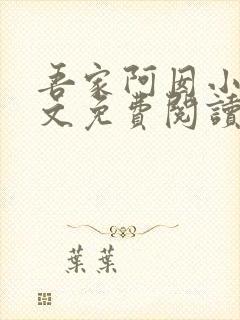 吾家阿囡小
文免費閱讀
葉葉